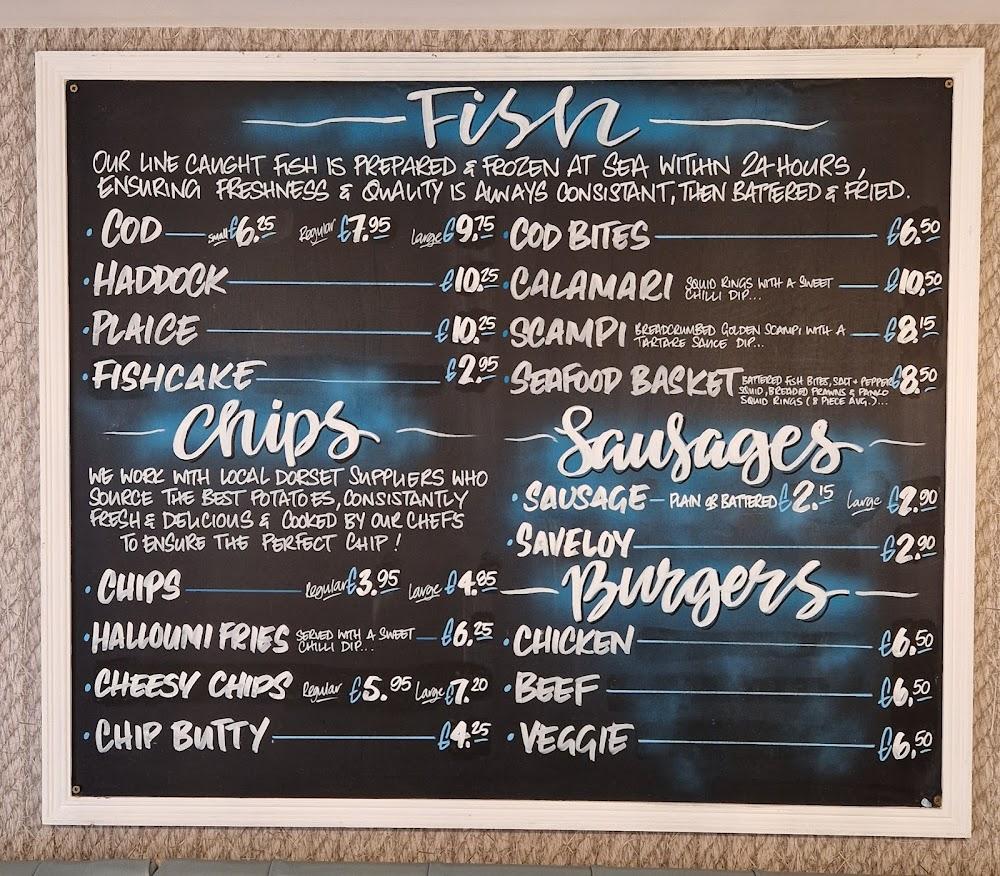 Fish
OUR LINE CAUGHT FISH IS PREPARED & FROZEN AT SEA WITHIN 24 HOURS,
ENSURING FRESHNESS & QUALITY IS ALWAYS CONSISTANT, THEN BATTERED & FRIED.
• COD small £6.25 Regular £7.95 Large £9.75
• HADDOCK £10.25
• PLAICE £10.25
• FISHCAKE £2.95
• COD BITES £6.50
• CALAMARI SQUID RINGS WITH A SWEET
CHILLI DIP... £10.50
• SCAMPI BREADCRUMBED GOLDEN SCAMPI WITH A
TARTARE SAUCE DIP... £8.15
• SEAFOOD BASKET BATTERED FISH BITES, SALT & PEPPER £8.50
SQUID, BREADED PRAWNS & PANKO
SQUID RINGS (8 PIECE AVG.)...
Chips
WE WORK WITH LOCAL DORSET SUPPLIERS WHO
SOURCE THE BEST POTATOES, CONSISTANTLY
FRESH & DELICIOUS & COOKED BY OUR CHEFS
TO ENSURE THE PERFECT CHIP!
• CHIPS Regular £3.95 Large £4.85
• HALLOUMI FRIES SERVED WITH A SWEET
CHILLI DIP... £6.25
• CHEESY CHIPS Regular £5.95 Large £7.20
• CHIP BUTTY £4.25
Sausages
• SAUSAGE – PLAIN OR BATTERED £2.15 Large £2.90
• SAVELOY £2.90
Burgers
• CHICKEN £6.50
• BEEF £6.50
• VEGGIE £6.50